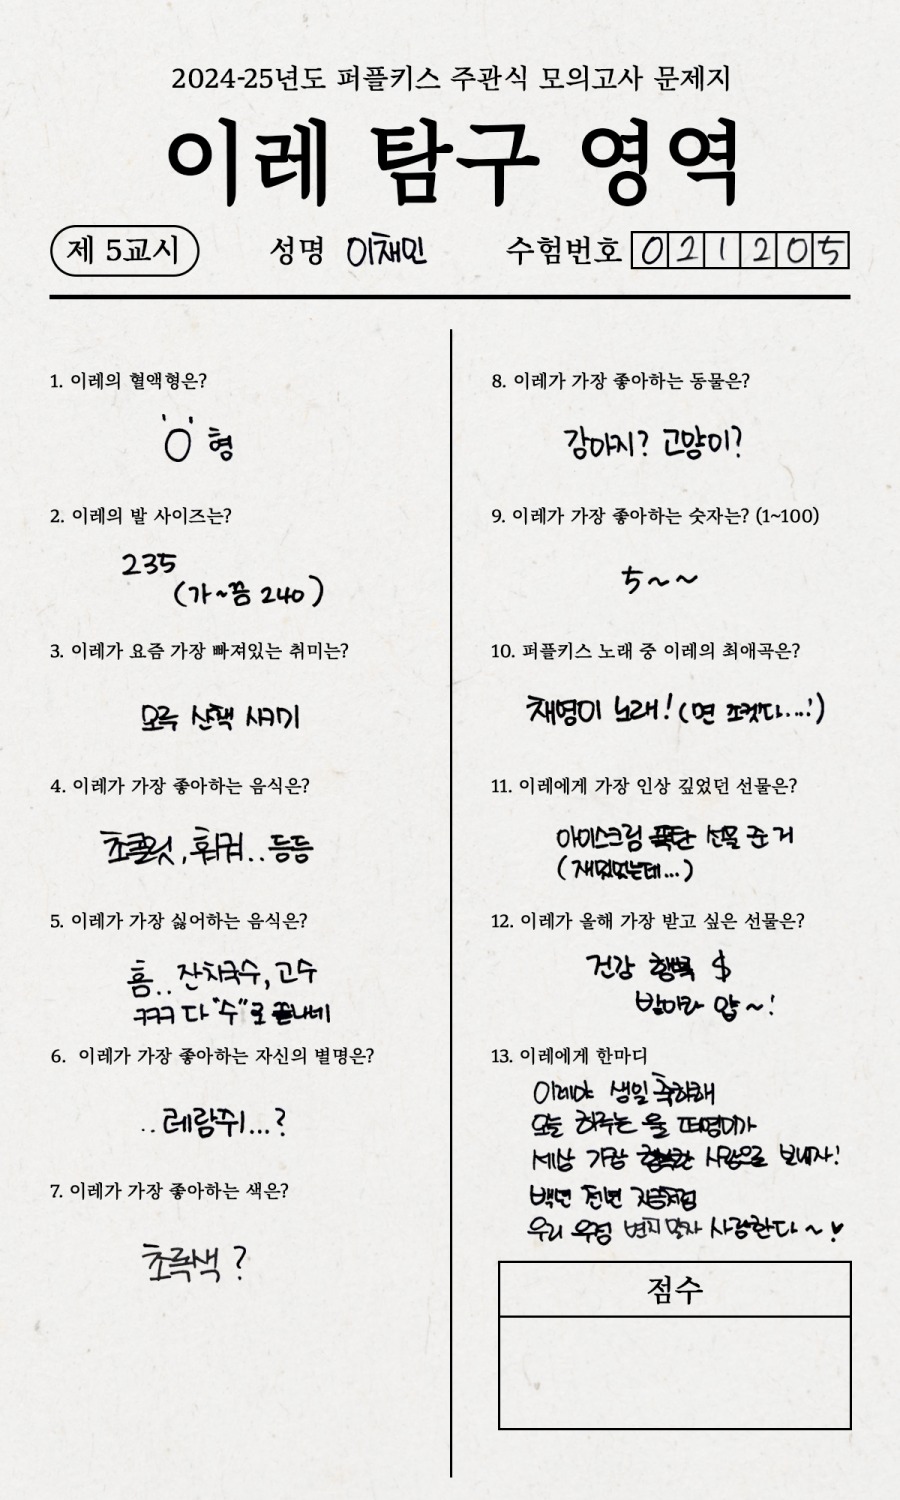 2024-25년도 퍼플키스 주관식 모의고사 문제지
이레 탐구 영역
제 5교시
성명 이채민
수험번호 021205
1. 이레의 혈액형은?
'O' 형
2. 이레의 발 사이즈는?
235
(가~끔 240)
3. 이레가 요즘 가장 빠져있는 취미는?
모루 산책 시키기
4. 이레가 가장 좋아하는 음식은?
초콜릿, 훠궈.. 등등
5. 이레가 가장 싫어하는 음식은?
흠.. 잔치국수, 고수
ㅋㅋㅋ 다 "수"로 끝나네
6. 이레가 가장 좋아하는 자신의 별명은?
..레람쥐...?
7. 이레가 가장 좋아하는 색은?
초록색 ?
8. 이레가 가장 좋아하는 동물은?
강아지? 고양이?
9. 이레가 가장 좋아하는 숫자는? (1~100)
5~~
10. 퍼플키스 노래 중 이레의 최애곡은?
채영이 노래! (면 조켓다...!)
11. 이레에게 가장 인상 깊었던 선물은?
아이스크림 폭탄 선물 준 거
(재밌었는데...)
12. 이레가 올해 가장 받고 싶은 선물은?
건강 행복 $
받아라 얍~!
13. 이레에게 한마디
이레야 생일 축하해
오늘 하루는 울
세상 가장 행복한 사람으로 보내자!
백년 천년 지금처럼
우리 우정 변치말자 사랑한다~♥
점수